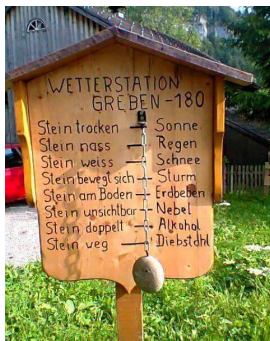 WETTERSTATION
GREBEN - 180
Stein trocken Sonne
Stein nass Regen
Stein weiss Schnee
Stein bewegt sich Sturm
Stein am Boden Erdbeben
Stein unsichtbar Nebel
Stein doppelt Alkohol
Stein weg Diebstahl